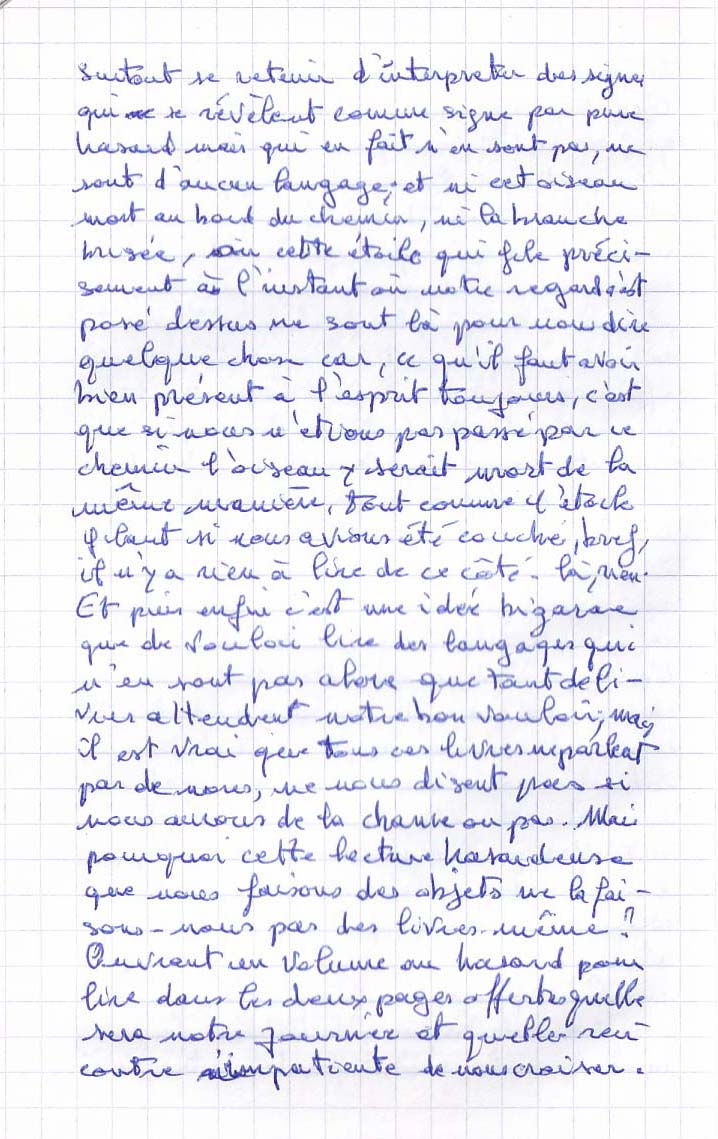 Surtout se retenir d'interpreter des signes
qui se révèlent comme signe par pure
hasard mais qui en fait n'en sont pas, ne
sont d'aucun langage; et ni cet oiseau
mort au bord du chemin, ni la branche
brisée, ni cette étoile qui file préci-
sement à l'instant où notre regard s'est
posé dessus ne sont là pour nous dire
quelque chose car, ce qu'il faut avoir
bien présent à l'esprit toujours, c'est
que si nous n'étions pas passé par ce
chemin l'oiseau y serait mort de la
même manière, tout comme l'étoile
filant si nous avions été couché, bref,
il n'y a rien à lire de ce côté-là, rien.
Et puis enfin c'est une idée bizarre
que de vouloir lire des langages qui
n'en sont pas alors que tant de li-
vres attendent notre bon vouloir, mais
il est vrai que tous ces livres ne parlent
pas de nous, ne nous disent pas si
nous aurons de la chance ou pas. Mais
pourquoi cette lecture hasardeuse
que nous faisons des objets ne la fai-
sons-nous pas des livres même?
Ouvrant un volume au hasard pour
lire dans les deux pages offertes quelle
sera notre journée et quelle ren-
contre impatiente de nous croiser.